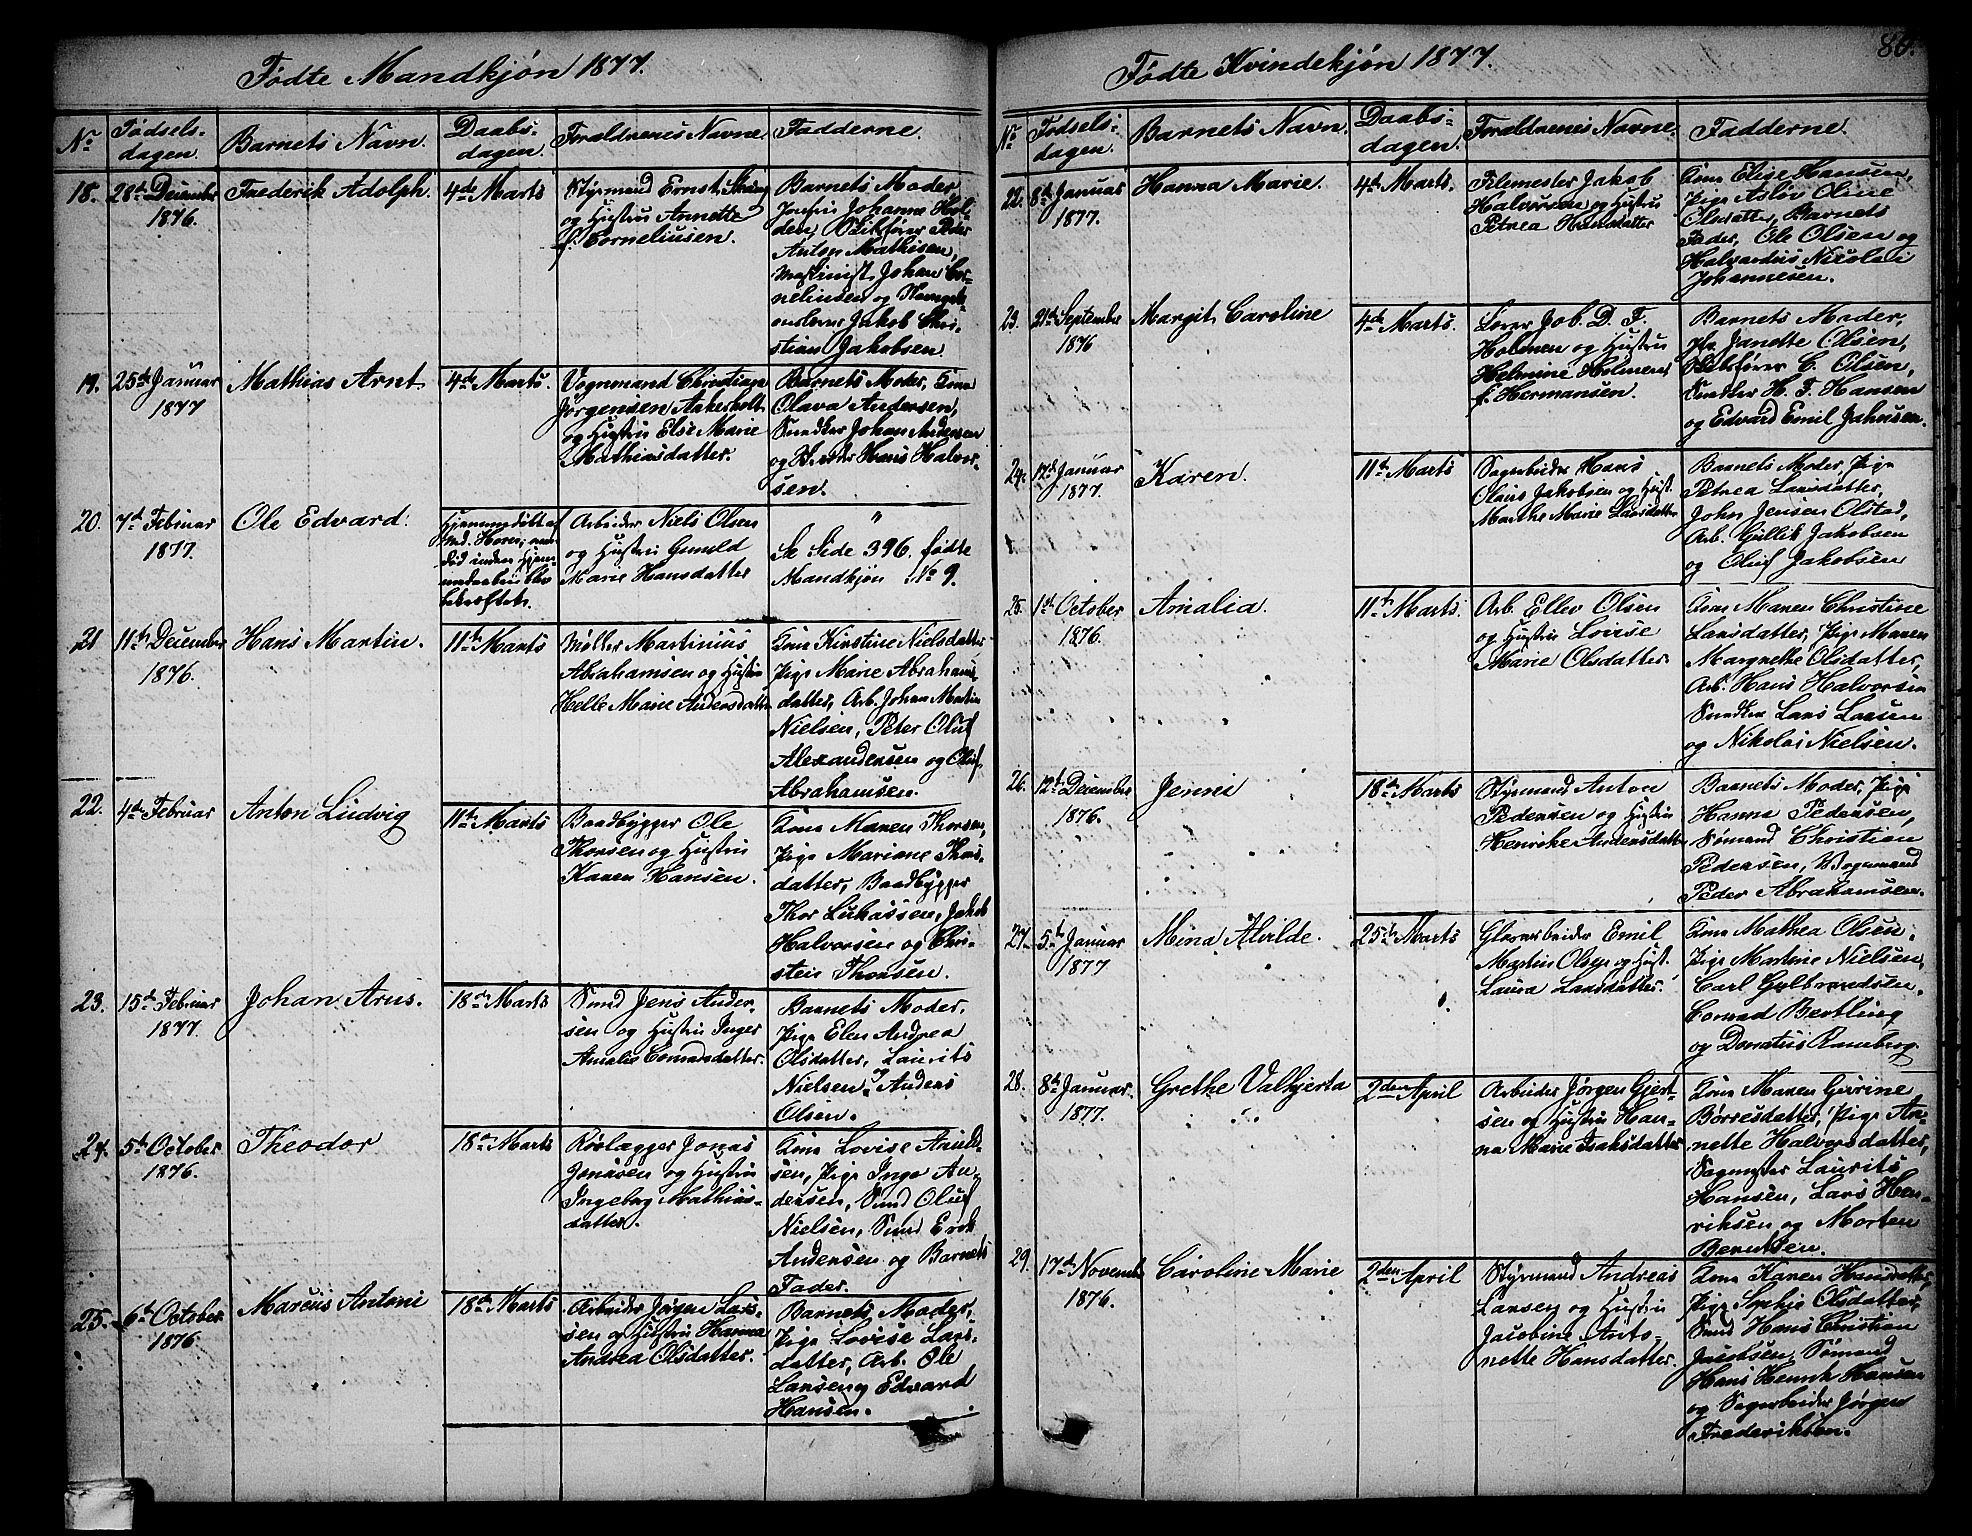 Fødte Mandkjøn 1877.
No
Fødsels-
dagen.
Barnets Navn.
Daabs-
dagen.
Foraldrenes Navne.
Fadderne.
18.
28de December
1876.
Frederik Adolph.
4de Marts
Styrmand Ernst
og Hustru Annette
f. Corneliusen.
Barnets Moder,
Jomfru Johanne Hol-
den, Peder
Anton Mathisen,
Maskinist Johan Cor-
neliusen og
Jakob Chri-
stian Jakobsen.
19.
25de Januar
1877
Mathias Arnt
4de Marts.
Vognmand Christian
Jørgensen Aakerholt
og Hustru Else Marie
Mathiasdatter.
Barnets Moder, Kone
Olava Andersen,
Snedker Johan Andersen
og Hans Halvor-
sen.
20.
7de Februar
1877.
Ole Edvard.
Hjemmedøbt af
Arbeider Niels Olsen
og Hustru Gunild
Marie Hansdatter
"
Se Side 396. fødte
Mandkjøn No 9.
21
11te December
1876.
Hans Martin.
11te Marts
Møller Martinius
Abrahamsen og Hustru
Helle Marie Andersdatter
Kone Kirstine Nielsdatter
Pige Marie Abrahams-
datter, Arb. Johan Martin
Nielsen, Peter Oluf
Alexandersen og Oluf
Abrahamsen.
22.
4de Februar
Anton Ludvig
11te Marts
Baadbygger Ole
Thorsen og Hustru
Karen Hansen.
Kone Maren Thorsen,
Pige Mariane Thors-
datter, Baadbygger
Thor Lukassen, Jakob
Halvorsen og Chri-
stein Thorsen.
23.
15de Februar
1877.
Johan Arus.
18de Marts
Smd Jens Ander-
sen og Hustru Inger
Amalie
Barnets Moder,
Pige Elen Andrea
Olsdatter, Laurits
Nielsen og Anders
Olsen.
24.
5te October
1876.
Theodor
18de Marts
Jonas
Jonasen og Hustru
Ingeborg Mathias-
datter.
Kone Lovise
sen, Pige Inge An-
dersen, Smd Oluf
Nielsen, Smd Erik
Andersen og Barnets
Fader.
25.
6te October
1876.
Marcus Antoni
18de Marts
Arbeider Jørgen Lar-
sen og Hustru Hanna
Andrea Olsdatter.
Barnets Moder,
Pige Lovise Lars-
datter, Arb. Ole
Larsen og Edvard
Hansen.
86.
Fødte Kvindekjøn 1877.
No
Fødsels-
dagen.
Barnets Navn.
Daabs-
dagen.
Foraldrenes Navne.
Fadderne.
22.
8de Januar
1877.
Hanna Marie.
4de Marts.
Filemester Jakob
Halvorsen og Hustru
Petrea Hansdatter
Kone Elise Hansen,
Pige Asløv Oline
Olsdatter, Barnets
Fader, Ole Olsen og
Halvardus Nicolai
Johannesen.
23.
21de September
1876
Margit Caroline
4de Marts.
Lærer Job. D. F.
Holmen og Hustru
Helmine Holmen
f. Hermansen.
Barnets Moder,
Janette Olsen,
C. Olsen,
Snedker H. F. Hansen
og Edvard Emil Jahnsen.
24.
12te Januar
1877.
Karen.
11te Marts
Sagarbeider Hans
Olaus Jakobsen og Hust.
Marthe Marie Larsdatter
Barnets Moder, Pige
Petrea Larsdatter,
John Jensen Olstad,
Arb. Gullik Jakobsen
og Oluf Jakobsen
25.
1ste October
1876.
Amalia.
11te Marts.
Arb. Ellev Olsen
og Hustru Lovise
Marie Olsdatter.
Kone Maren Christine
Larsdatter, Pige Maren
Margrethe Olsdatter,
Arb. Hans Halvorsen
Snedker Lars Larsen
og Nikolai Nielsen.
26.
12te December
1876.
Jenni
18de Marts
Styrmand Anton
Pedersen og Hustru
Henrike Andersdatter
Barnets Moder, Pige
Hanna Pedersen,
Sømand Christian
Pedersen, Vognmand
Peder Abrahamsen.
27.
5te Januar
1877
Mina Alvilde.
25de Marts
Glasarbeider Emil
Martin Olsen og Hust.
Laura Larsdatter.
Kone Mathea Olsen,
Pige Martine Nielsen,
Carl Gulbrandsen,
Conrad Bertling
og Donatius Ramberg.
28.
8de Januar.
1877.
Grethe Valhjerta
2den April
Arbeider Jørgen Gjert-
sen og Hustru Han-
na Marie Isaksdatter
Kone Maren Gurine
Borresdatter, Pige An-
nette Halvorsdatter,
Sagmester Laurits
Hansen, Lars Hen-
riksen og Morten
Berntsen.
29.
17de Novemb.
1876.
Caroline Marie
2den April
Styrmand Andreas
Larsen og Hustru
Jacobine Anto-
nette Hansdatter.
Kone Karen Hansdatter,
Pige Sophie Olsdatter,
Smd Hans Christian
Jacobsen, Sømand
Hans Henrik Hansen
og Sagarbeider Jørgen
Frederiksen.